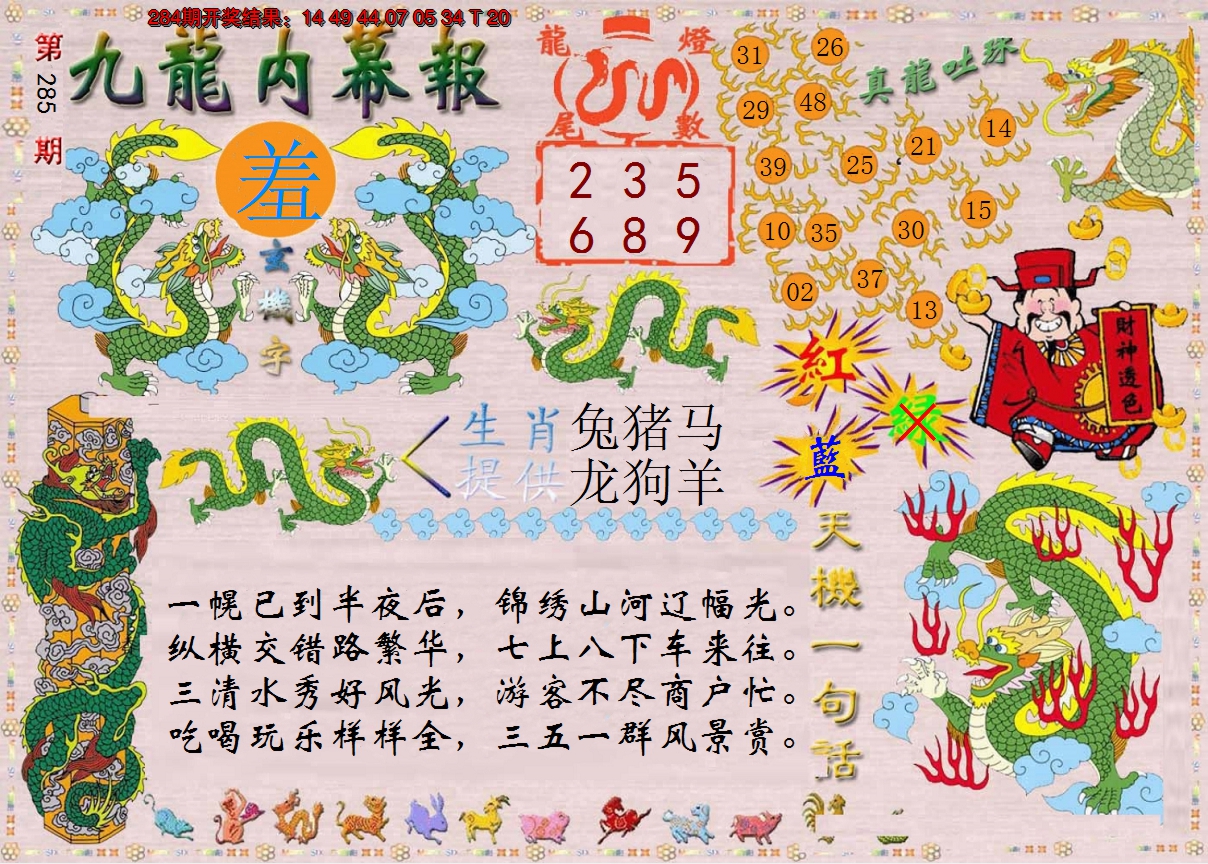 284期开奖结果：14 49 44 07 05 34 T 20
第285期
九龍内幕報
羞
玄機字
龍燈
尾數
2 3 5
6 8 9
真龍吐珠
31 26
29 48
39 25 21 14
10 35 30 15
02 37 13
財神透色
紅
绿
藍
生肖 兔猪马
提供 龙狗羊
天機一句話
一幌已到半夜后，锦绣山河辽幅光。
纵横交错路繁华，七上八下车来往。
三清水秀好风光，游客不尽商户忙。
吃喝玩乐样样全，三五一群风景赏。